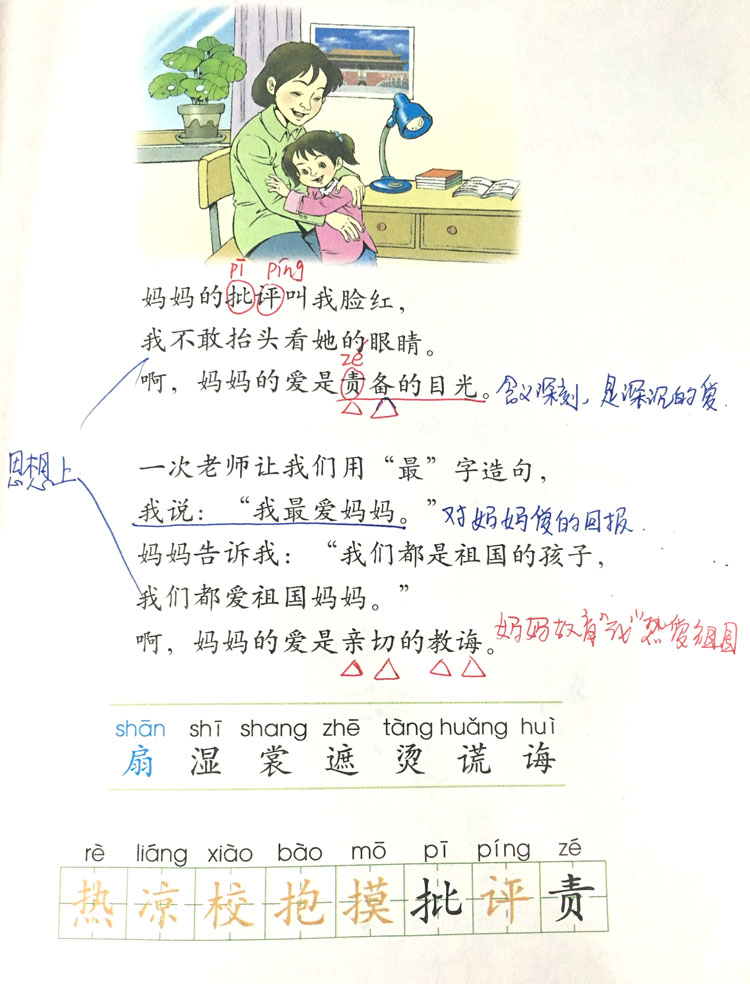 pī píng
妈妈的批评叫我脸红，
我不敢抬头看她的眼睛。
zé
啊，妈妈的爱是责备的目光。含义深刻，是深沉的爱
思想上
一次老师让我们用“最”字造句，
我说：“我最爱妈妈。”对妈妈爱的回报
妈妈告诉我：“我们都是祖国的孩子，
我们都爱祖国妈妈。”
啊，妈妈的爱是亲切的教诲。妈妈教育“我”热爱祖国
shān shī shang zhē tàng huǎng huì
扇 湿 裳 遮 烫 谎 诲
rè liáng xiào bào mō pī píng zé
热 凉 校 抱 摸 批 评 责